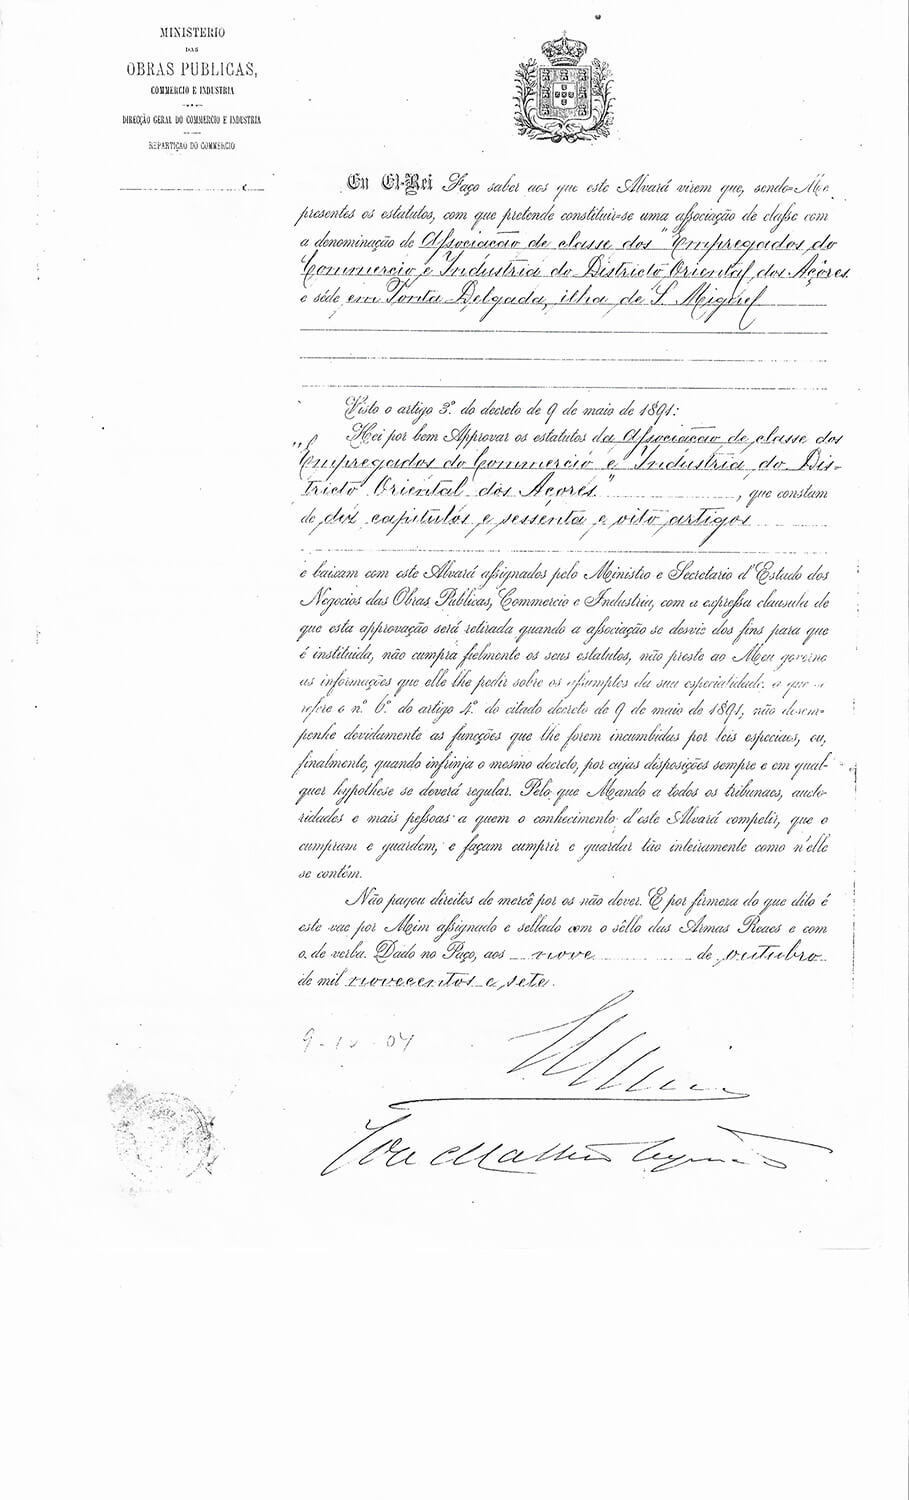 MINISTERIO
DAS
OBRAS PUBLICAS,
COMMERCIO E INDUSTRIA
DIRECÇÃO GERAL DO COMMERCIO E INDUSTRIA
REPARTIÇÃO DO COMMERCIO
Eu El-Rei Faço saber aos que este Alvará virem que, sendo-Me
presentes os estatutos, com que pretende constituir-se uma associação de classe com
a denominação de Associação de classe dos "Empregados do
Commercio e Industria do Districto Oriental dos Açôres
e séde em Ponta Delgada, ilha de S. Miguel
Visto o artigo 3º do decreto de 9 de maio de 1891:
Hei por bem Approvar os estatutos da Associação de classe dos
"Empregados do Commercio e Industria do Dis-
tricto Oriental dos Açores", que constam
de dez capitulos e sessenta e oito artigos
e baixam com este Alvará assignados pelo Ministro e Secretario d'Estado dos
Negocios das Obras Publicas, Commercio e Industria, com a expressa clausula de
que esta approvação será retirada quando a associação se desvie dos fins para que
é instituida, não cumpra fielmente os seus estatutos, não preste ao Meu governo
as informações que elle lhe pedir sobre os assumptos da sua especialidade, a que se
refere o nº 6º do artigo 4º do citado decreto de 9 de maio de 1891, não desem-
penhe devidamente as funcções que lhe forem incumbidas por leis especiaes, ou,
finalmente, quando infrinja o mesmo decreto, por cujas disposições sempre e em qual-
quer hypothese se deverá regular. Pelo que Mando a todos os tribunaes, aucto-
ridades e mais pessoas a quem o conhecimento d'este Alvará competir, que o
cumpram e guardem, e façam cumprir e guardar tão inteiramente como n'elle
se contém.
Não pagou direitos de mercê por os não dever. E por firmeza do que dito é
este vae por Mim assignado e sellado com o sêllo das Armas Reaes e com
o de verba. Dado no Paço, aos nove de outubro
de mil novecentos e sete.
9-10-07